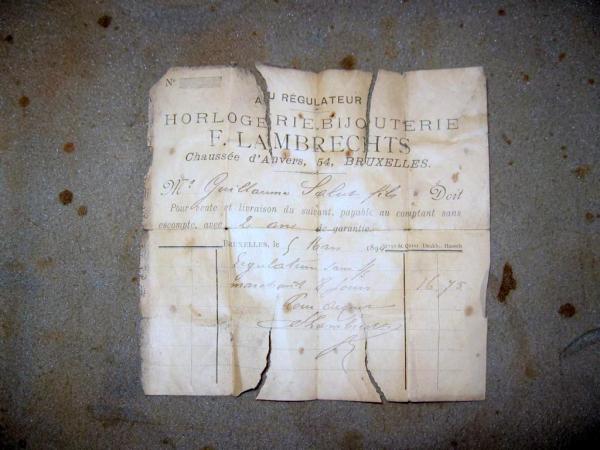 N°
AU RÉGULATEUR
HORLOGERIE, BIJOUTERIE
F. LAMBRECHTS
Chaussée d'Anvers, 54, BRUXELLES.
M Guillaume fils Doit
Pour vente et livraison du suivant, payable au comptant sans
escompte, avec 2 ans de garantie.
BRUXELLES, le 5 Mars 189
Regulateur
marchant 8 jours 16.75
Pour acquit
Lambrechts